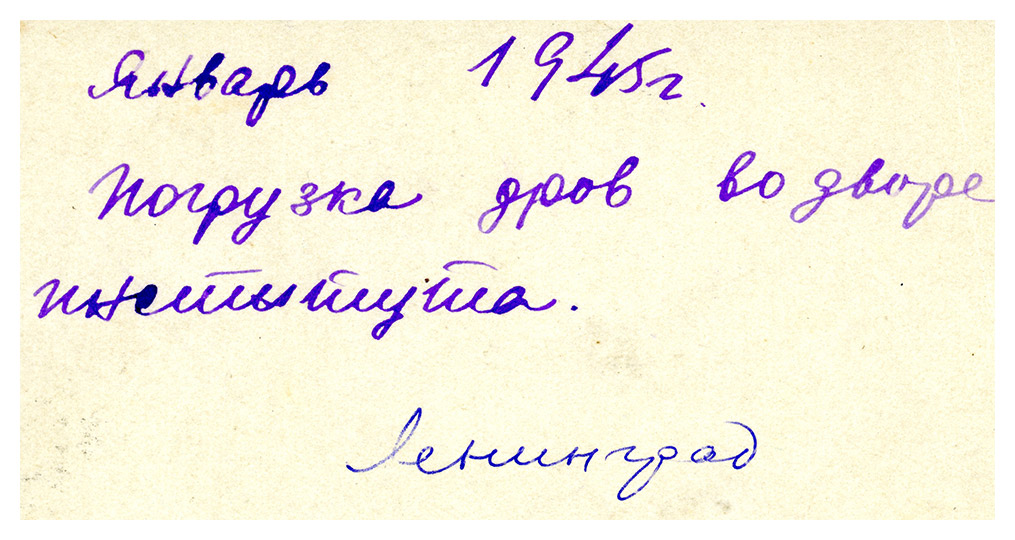 Январь 1945г.
Погрузка дров во дворе
института.
Ленинград